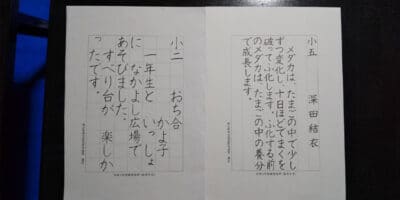 小五
深田結衣
メダカは、たまごの中で少し
ずつ変化し、十日ほどでまくを
破ってふ化します。ふ化する前
のメダカは、たまごの中の養分
で成長します。
小二
おち合
かよ子
一年生と いっしょ
に なかよし広場で
あそびました。
すべり台が 楽しか
ったです。